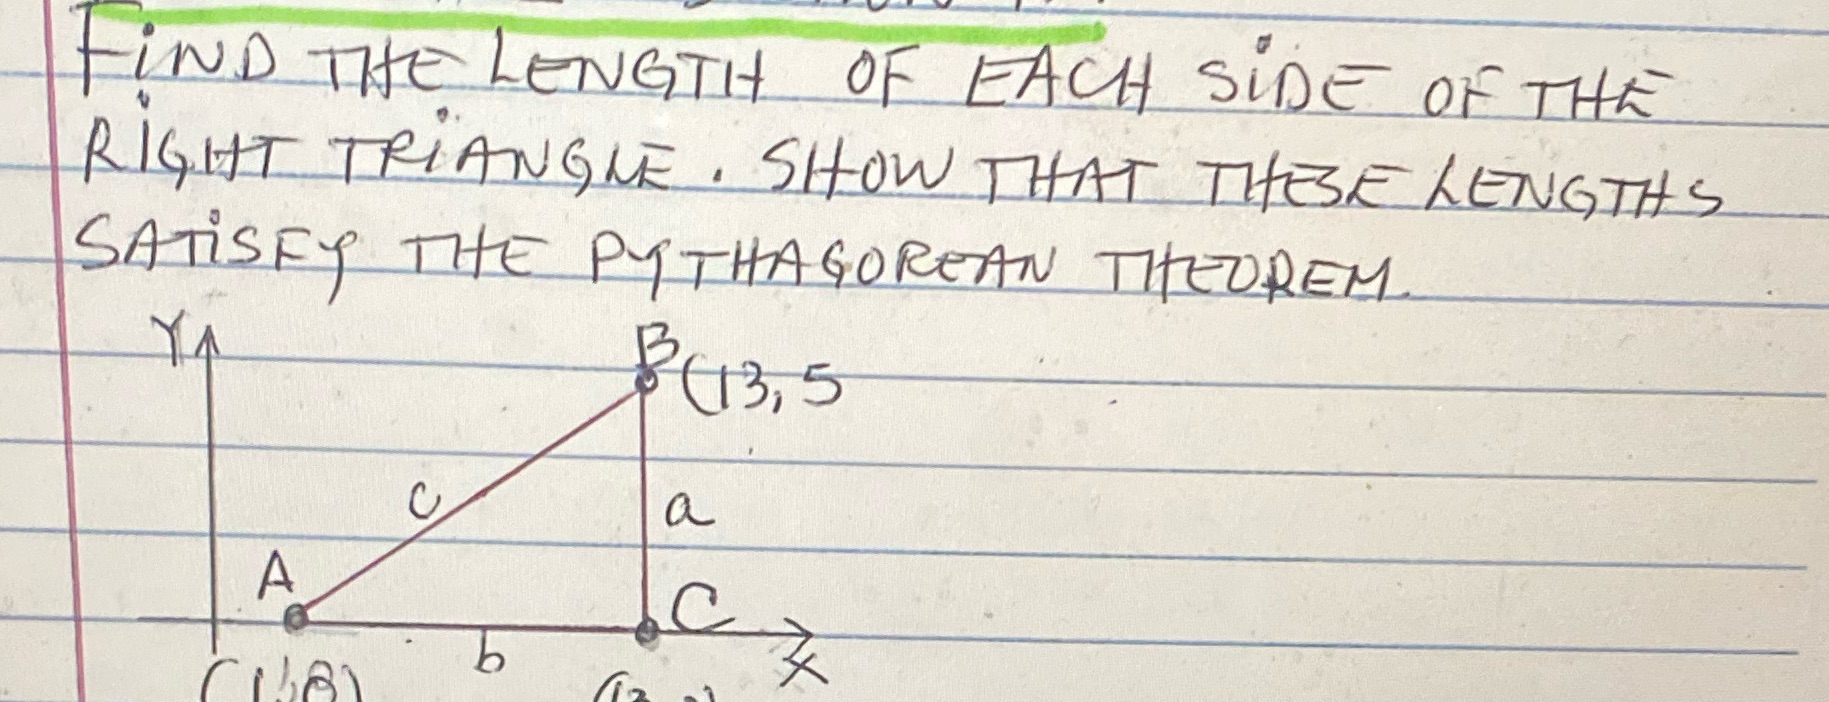 FIND THE LENGTH OF EACH SIDE OF THE
RIGHT TRIANGLE. SHOW THAT THESE LENGTHS
SATISFY THE PYTHAGOREAN THEOREM.
Y
B
(13, 5
c
a
A
C
b
X